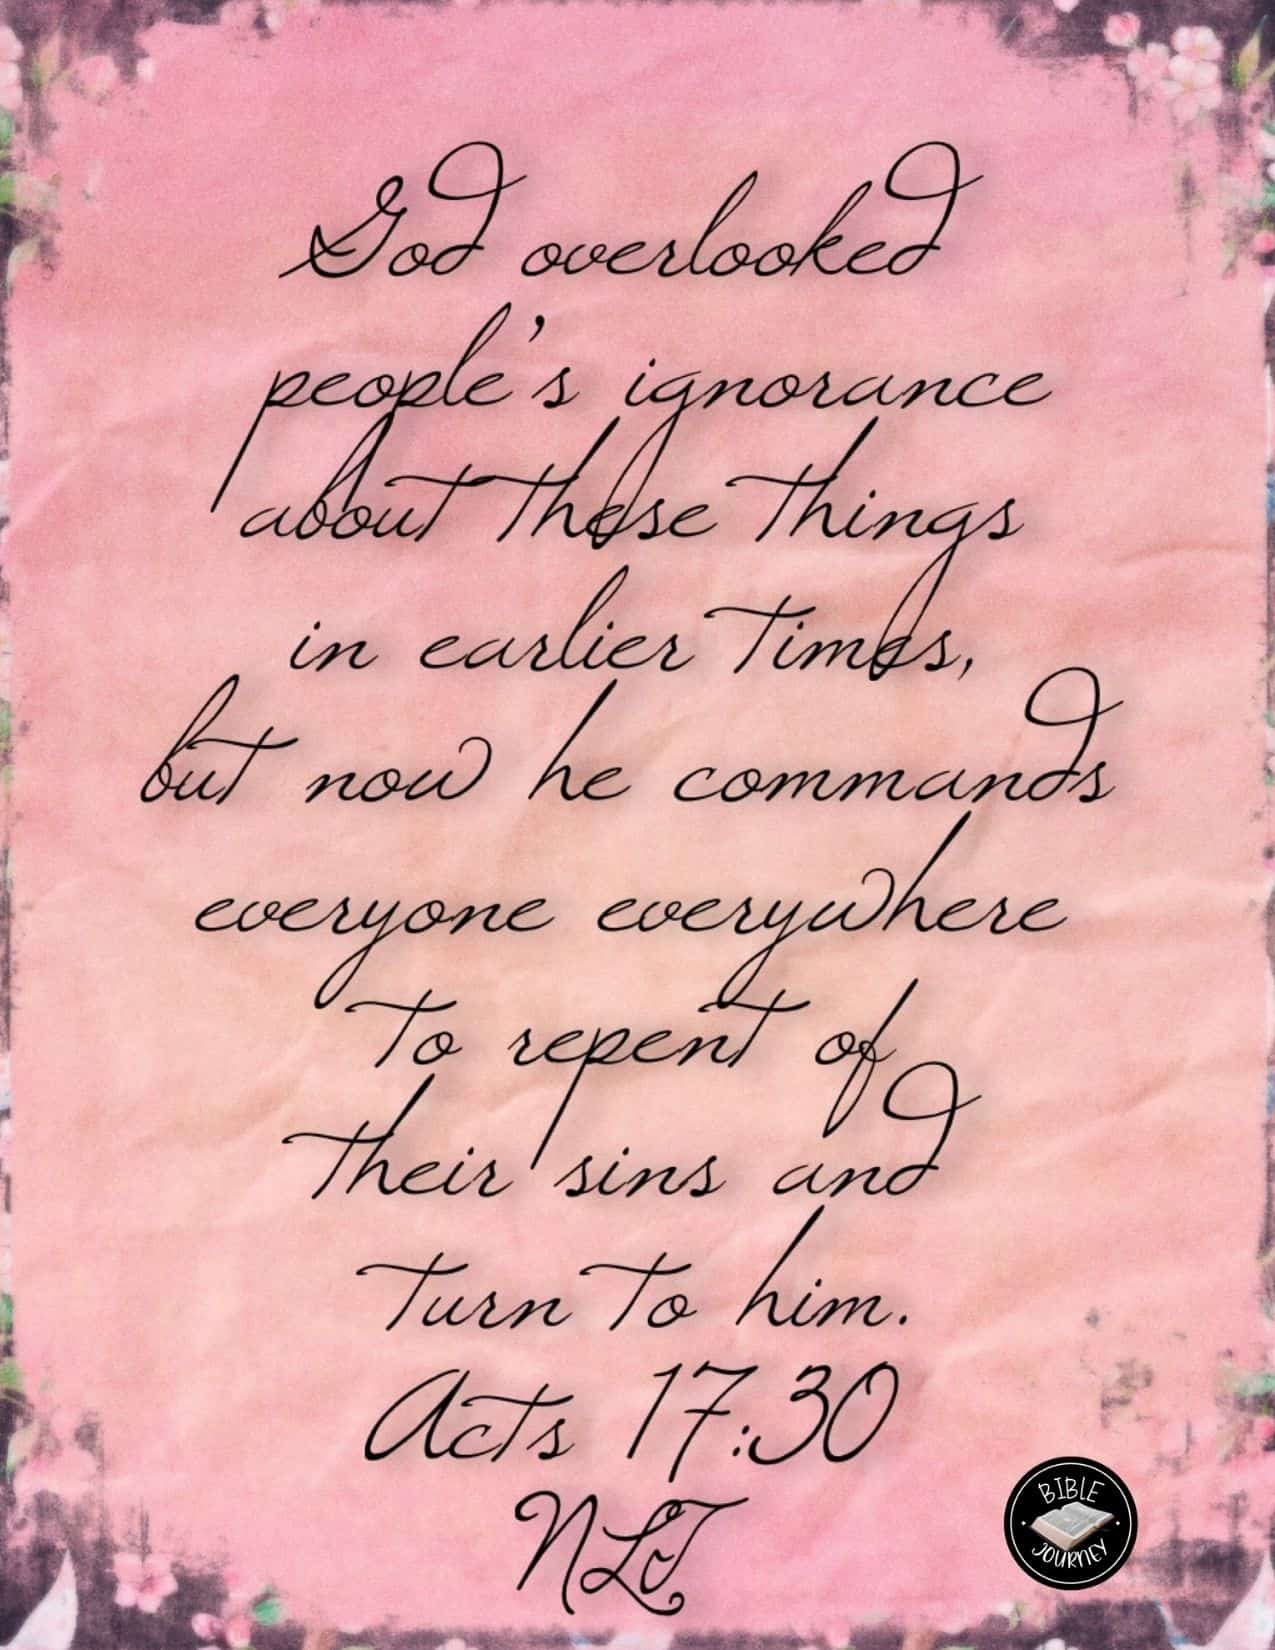 God overlooked
people's ignorance
about these things
in earlier times,
but now he commands
everyone everywhere
to repent of
their sins and
turn to him.
Acts 17:30
NLT
BIBLE
JOURNEY